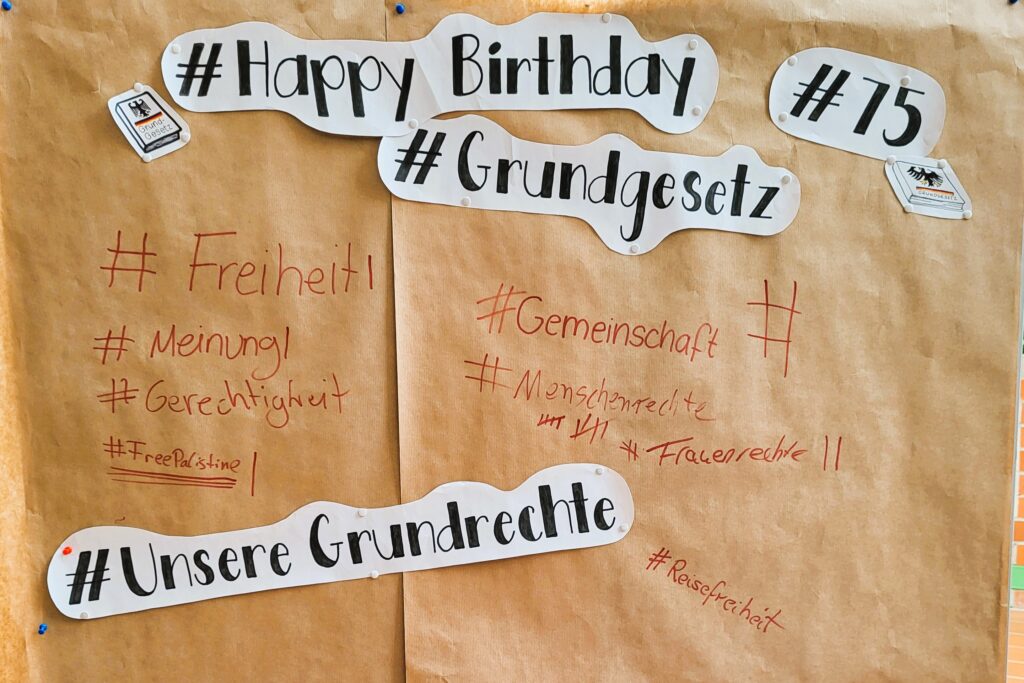 #Happy Birthday
#75
Grund-
Gesetz
#Grundgesetz
GRUNDGESETZ
# Freiheit |
# Meinung |
# Gerechtigkeit
#FreePalistine |
#Gemeinschaft #
# Menschenrechte
# Frauenrechte ||
#Unsere Grundrechte
#Reisefreiheit